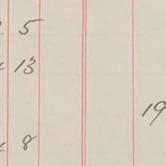 5
13
19
8